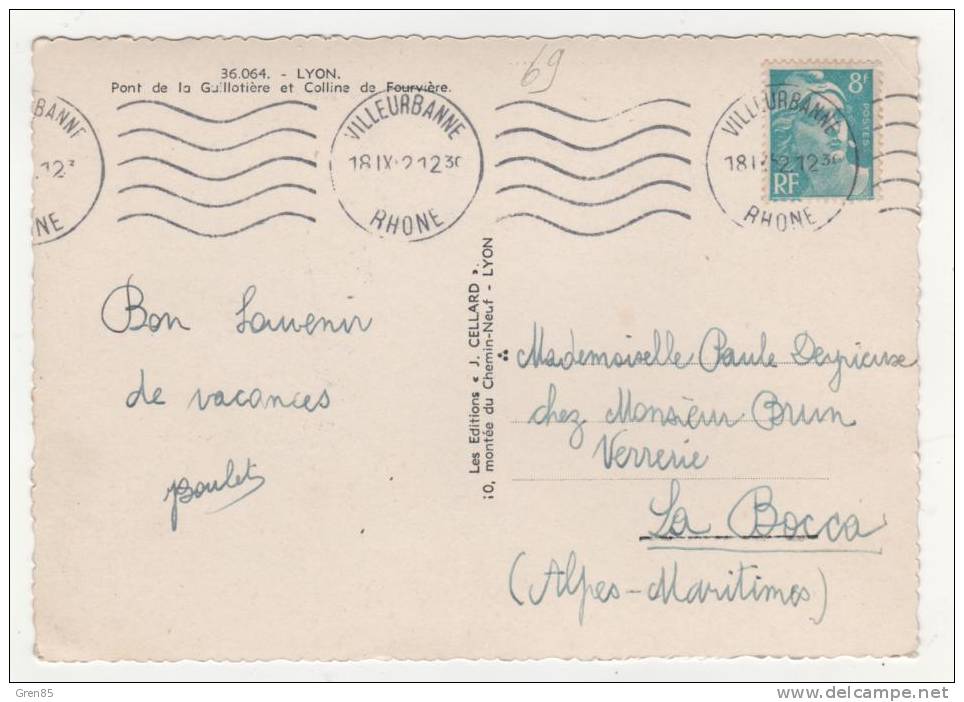 36.064. - LYON.
Pont de la Guillotière et Colline de Fourvière.
69
8F
POSTES
RF
BANNE
12
NE
VILLEURBANNE
18 IX 2 12 30
RHONE
VILLEURBANNE
18 I 52 12 30
RHONE
Bon Souvenir
de vacances
Poulet
Les Editions « J. CELLARD ».
10, montée du Chemin-Neuf - LYON
Mademoiselle Paule
chez Monsieur Brun
Verrerie
La Bocca
(Alpes-Maritimes)
Gren85
www.delcampe.net